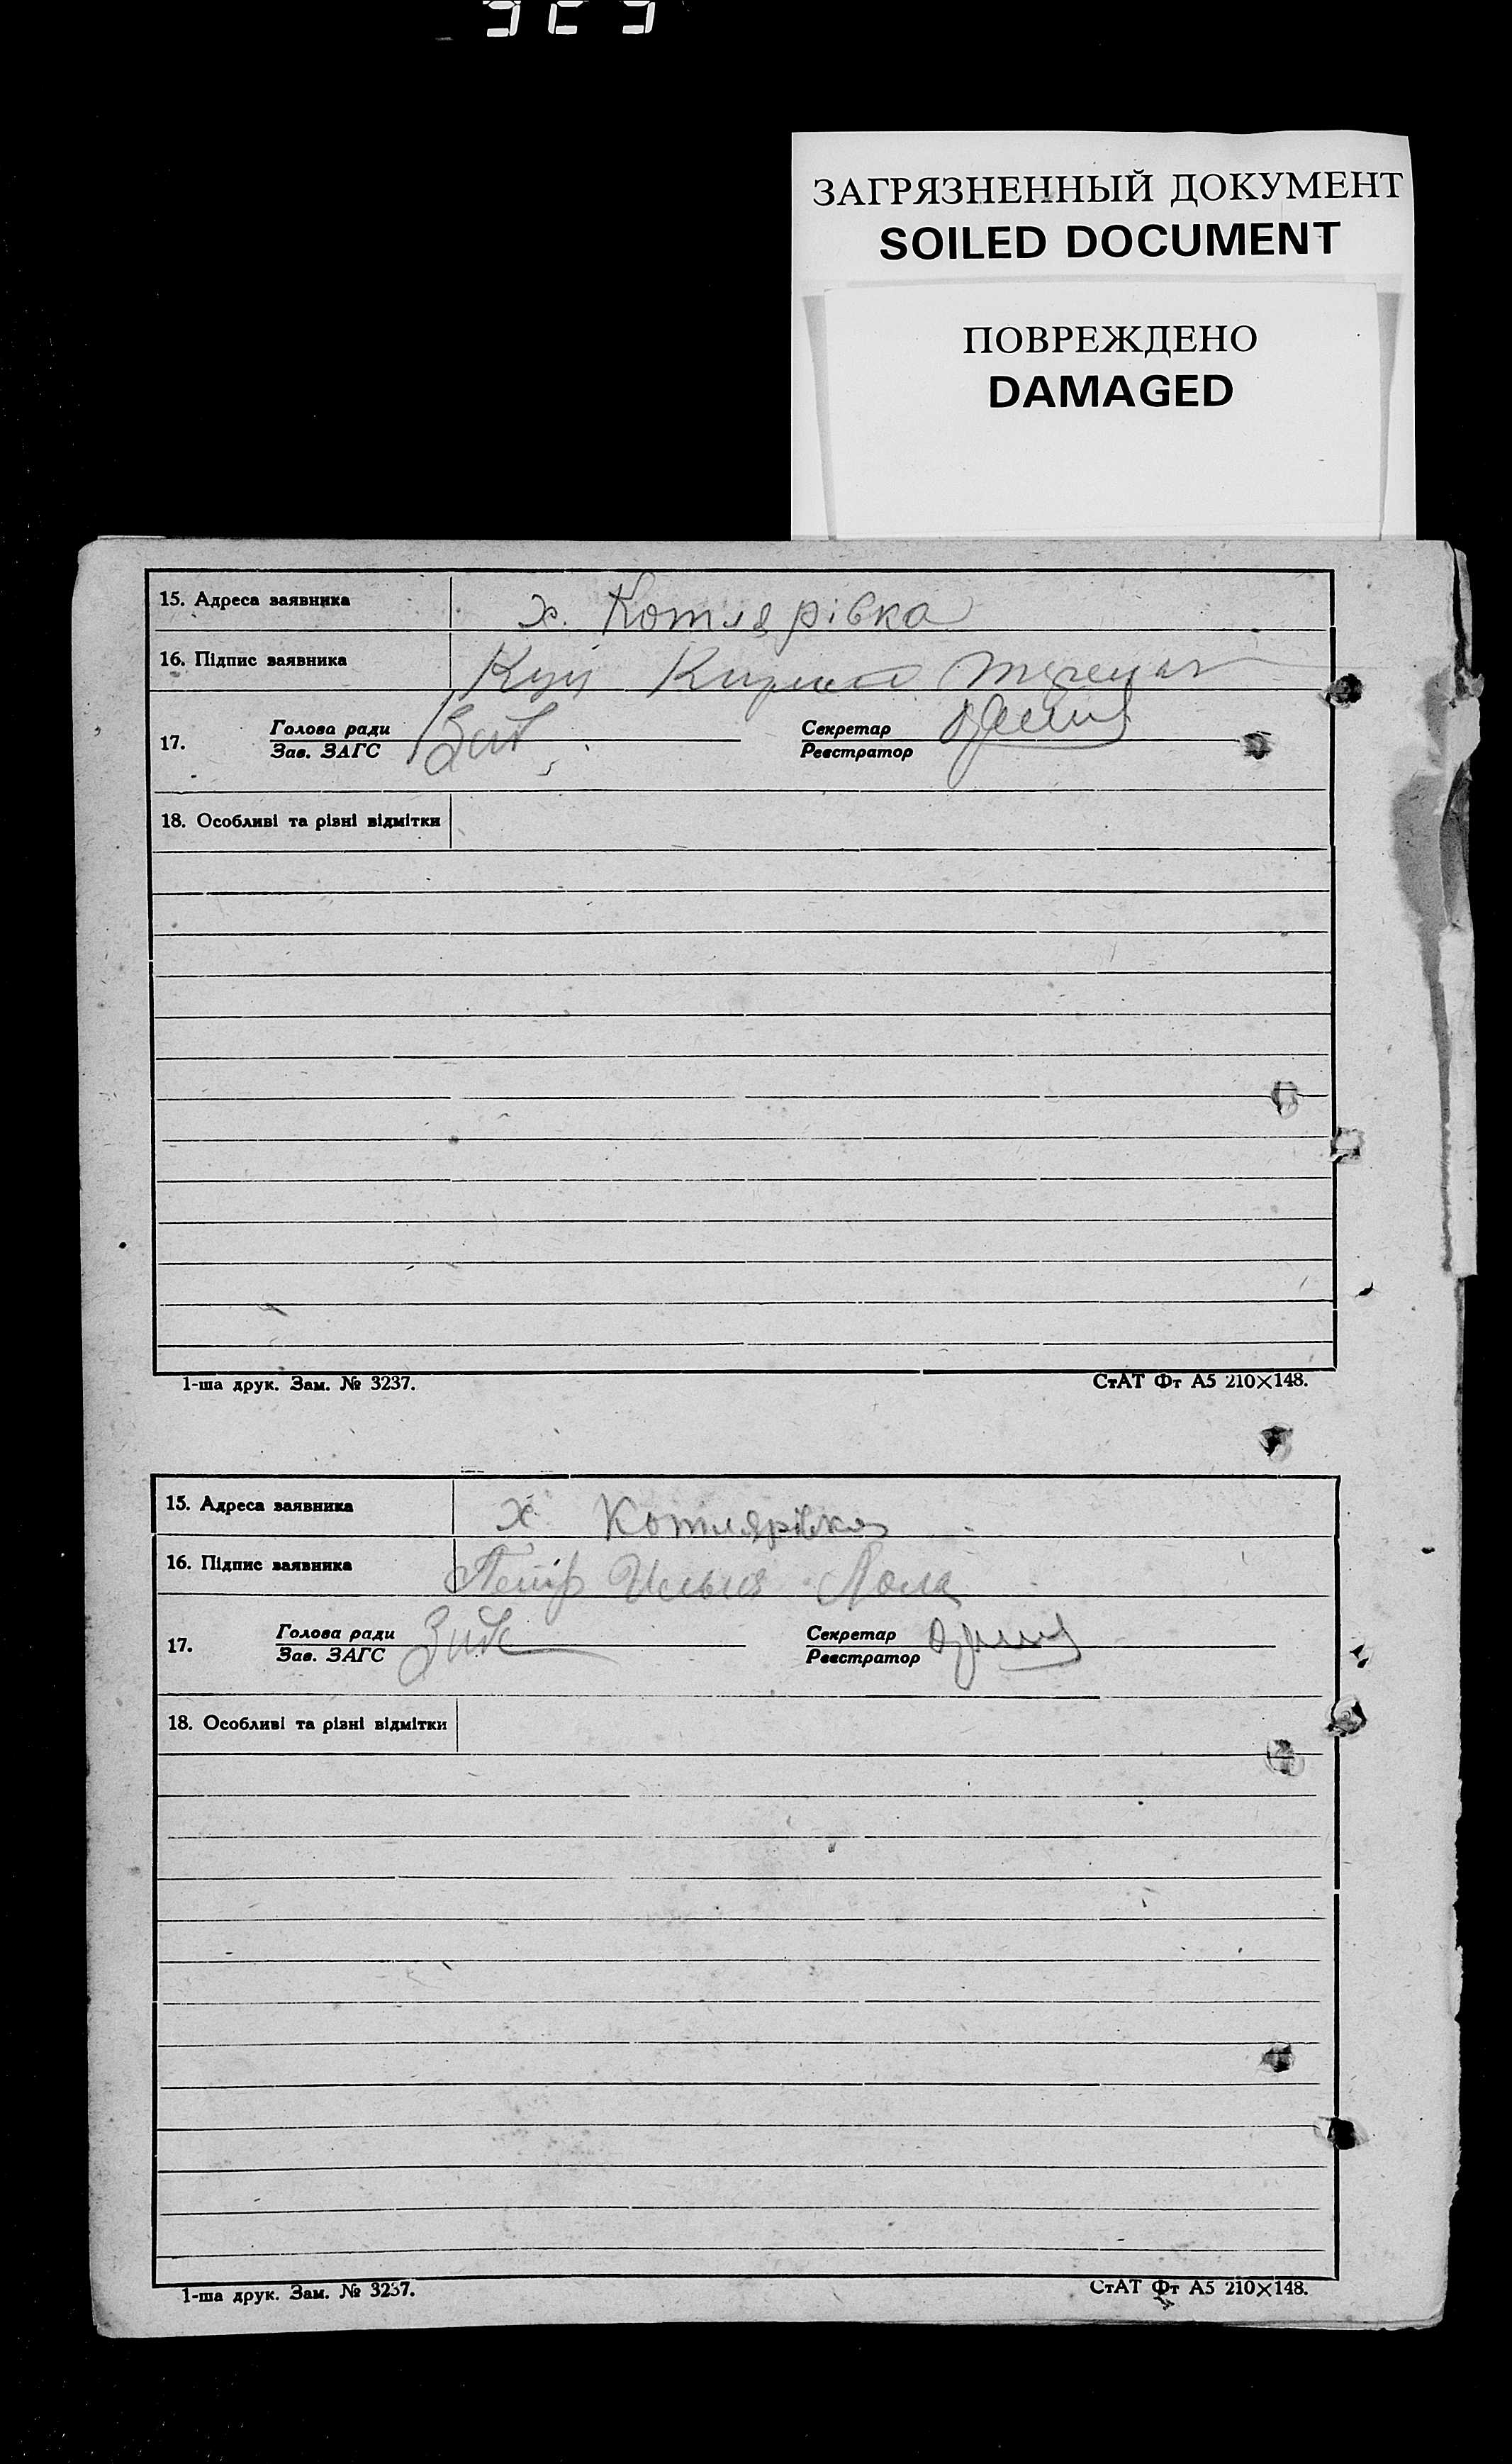 ЗАГРЯЗНЕННЫЙ ДОКУМЕНТ
SOILED DOCUMENT
ПОВРЕЖДЕНО
DAMAGED
15. Адреса заявника х. Котлярівка
16. Підпис заявника Куц
17. Голова ради Секретар
Зав. ЗАГС Реєстратор
18. Особливі та різні відмітки
1-ша друк. Зам. № 3237. СтАТ Фт А5 210×148.
15. Адреса заявника х Котлярівка
16. Підпис заявника Лола
17. Голова ради Секретар
Зав. ЗАГС Реєстратор
18. Особливі та різні відмітки
1-ша друк. Зам. № 3237. СтАТ Фт А5 210×148.